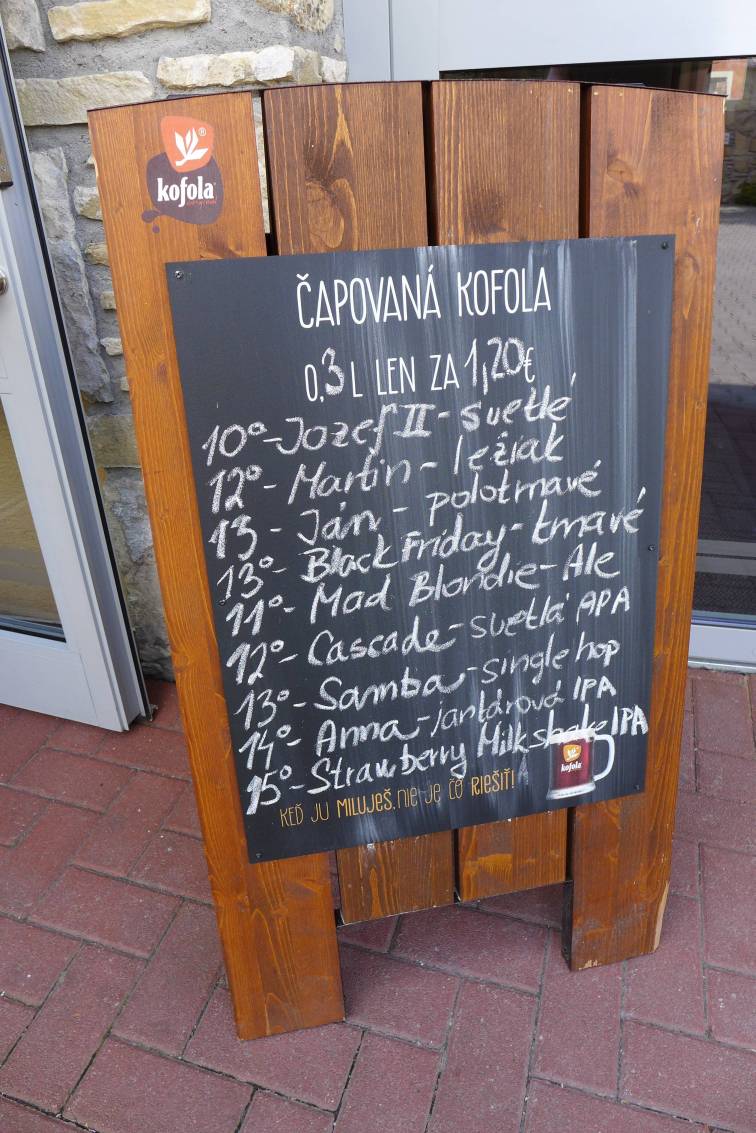 kofola
ČAPOVANÁ KOFOLA
0,3 L LEN ZA 1,20€
10°-Jozef II-svetlé
12°-Martin-ležiak
13-Ján-polotmavé
13°-Black Friday-tmavé
11°-Mad Blondie-Ale
12°-Cascade-svetlá APA
13°-Samba-single hop
14°-Anna-jantárová IPA
15°-Strawberry Milkshake IPA
kofola
KEĎ JU MILUJEŠ, NIE JE ČO RIEŠIŤ!